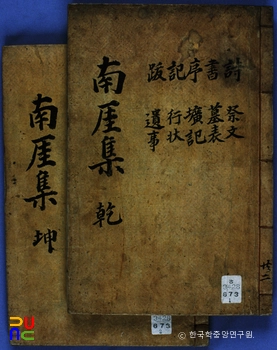 詩 書 序 記 跋
祭文
墓表
壙記
行状
遺事
南厓集 乾
南厓集 坤
共二
673
673
ⓒ 한국학중앙연구원